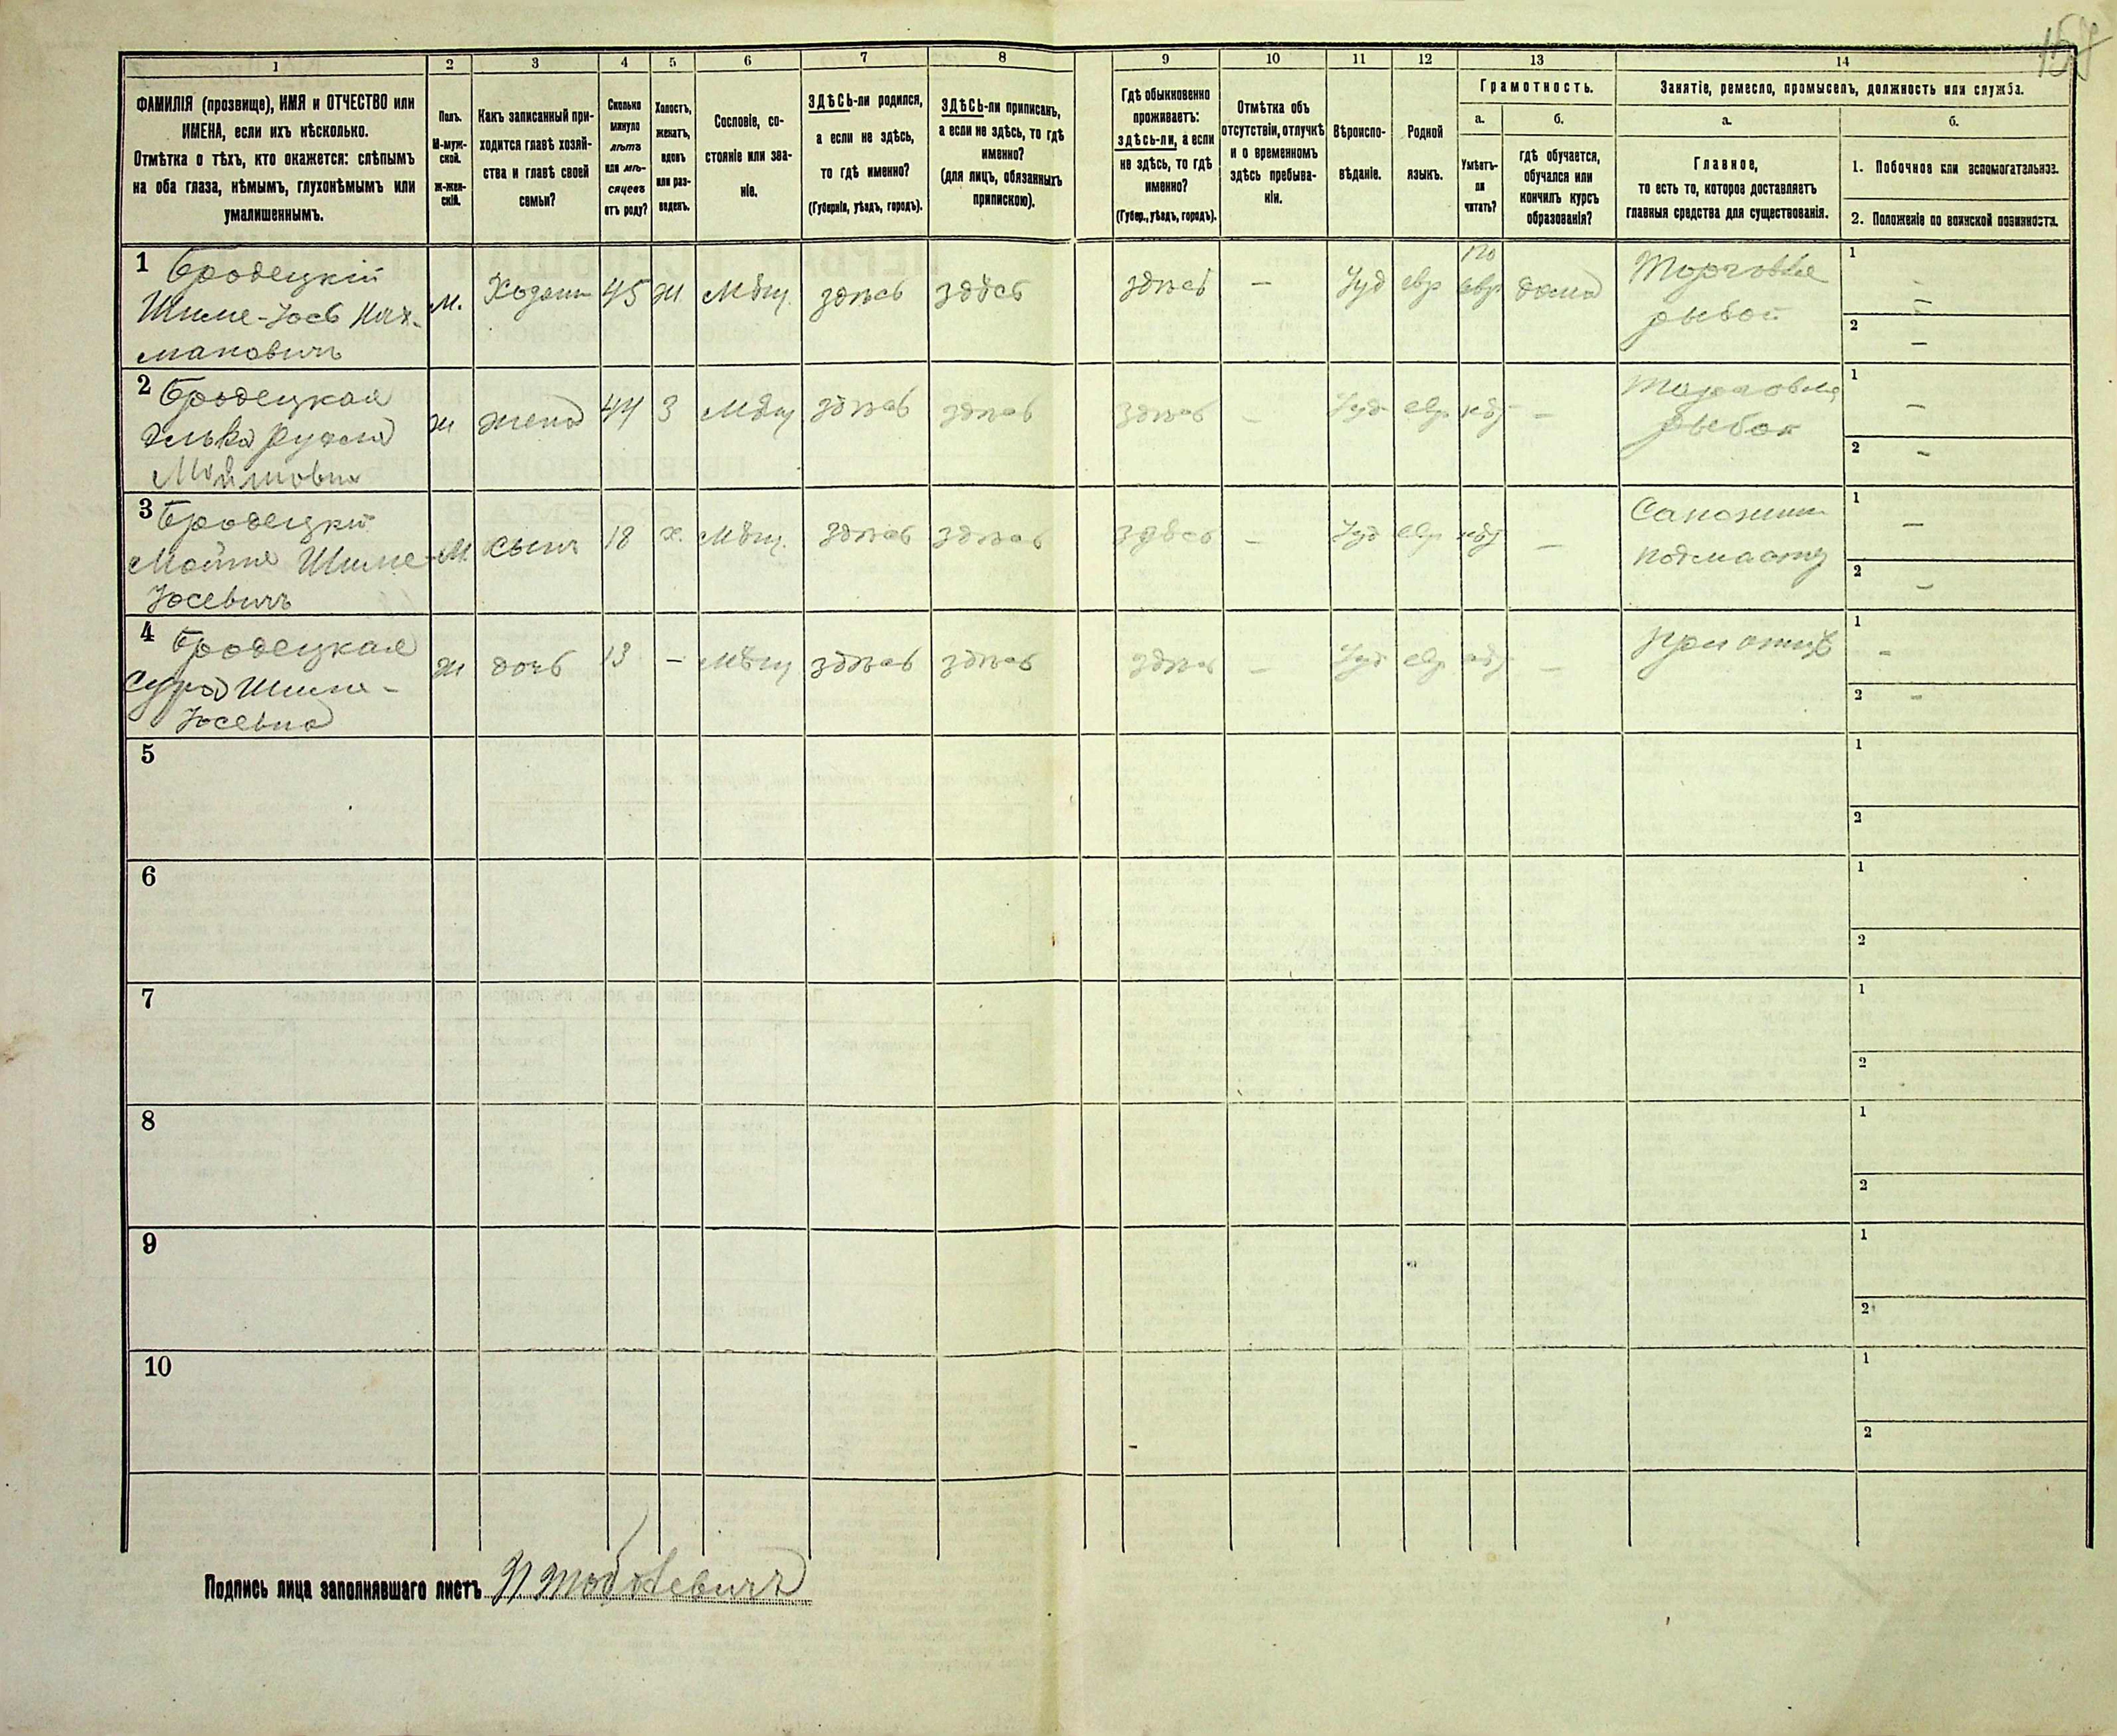 1 2 3 4 5 6 7 8 9 10 11 12 13 14
ФАМИЛІЯ (прозвище), ИМЯ и ОТЧЕСТВО или
ИМЕНА, если ихъ нѣсколько.
Отмѣтка о тѣхъ, кто окажется: слѣпымъ
на оба глаза, нѣмымъ, глухонѣмымъ или
умалишеннымъ.
Полъ.
М-муж-
ской.
ж-жен-
скій.
Какъ записанный при-
ходится главѣ хозяй-
ства и главѣ своей
семьи?
Сколько
минуло
лѣтъ
или мѣ-
сяцевъ
отъ роду?
Холостъ,
женатъ,
вдовъ
или раз-
веденъ.
Сословіе, со-
стояніе или зва-
ніе.
ЗДѢСЬ-ли родился,
а если не здѣсь,
то гдѣ именно?
(Губернія, уѣздъ, городъ).
ЗДѢСЬ-ли приписанъ,
а если не здѣсь, то гдѣ
именно?
(для лицъ, обязанныхъ
припискою).
Гдѣ обыкновенно
проживаетъ:
здѣсь-ли, а если
не здѣсь, то гдѣ
именно?
(Губер., уѣздъ, городъ).
Отмѣтка объ
отсутствіи, отлучкѣ
и о временномъ
здѣсь пребыва-
ніи.
Вѣроиспо-
вѣданіе.
Родной
языкъ.
Грамотность.
а.
Умѣетъ-
ли
читать?
б.
гдѣ обучается,
обучался или
кончилъ курсъ
образованія?
Занятіе, ремесло, промыселъ, должность или служба.
а.
Главное,
то есть то, которое доставляетъ
главныя средства для существованія.
б.
1. Побочное или вспомогательное.
2. Положеніе по воинской повинности.
1 Бродецкій
Шиме-Іосъ Нах-
мановичъ
м. Хозяин 45 ж Мѣщ. здѣсь здѣсь здѣсь — Іуд евр по
евр дома Торговля
рыбой
1 -
2 —
2 Бродецкая
Элька Рухля
жена 44 З Мѣщ здѣсь здѣсь здѣсь — Іуд евр — Торговля
рыбой
1 —
2 -
3 Бродецкій
Шиме-
Іосевичъ
М. сынъ 18 х. Мѣщ. здѣсь здѣсь здѣсь — Іуд евр —
1 —
2 —
4 Бродецкая
Сура Шиме-
Іосевна
ж дочь 13 — Мѣщ здѣсь здѣсь здѣсь — Іуд евр — при отцѣ
1 -
2 -
5 1
2
6 1
2
7 1
2
8 1
2
9 1
2
10 1
2
Подпись лица заполнявшаго листъ